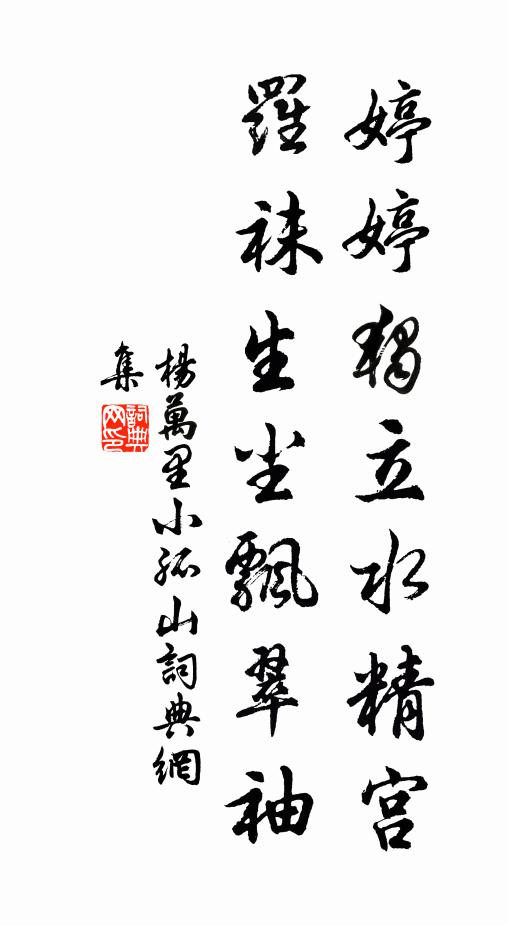 婷婷獨立水精宮
羅袜生尘飄翠袖
楊萬里小孤山詞典網
集
詞典网印